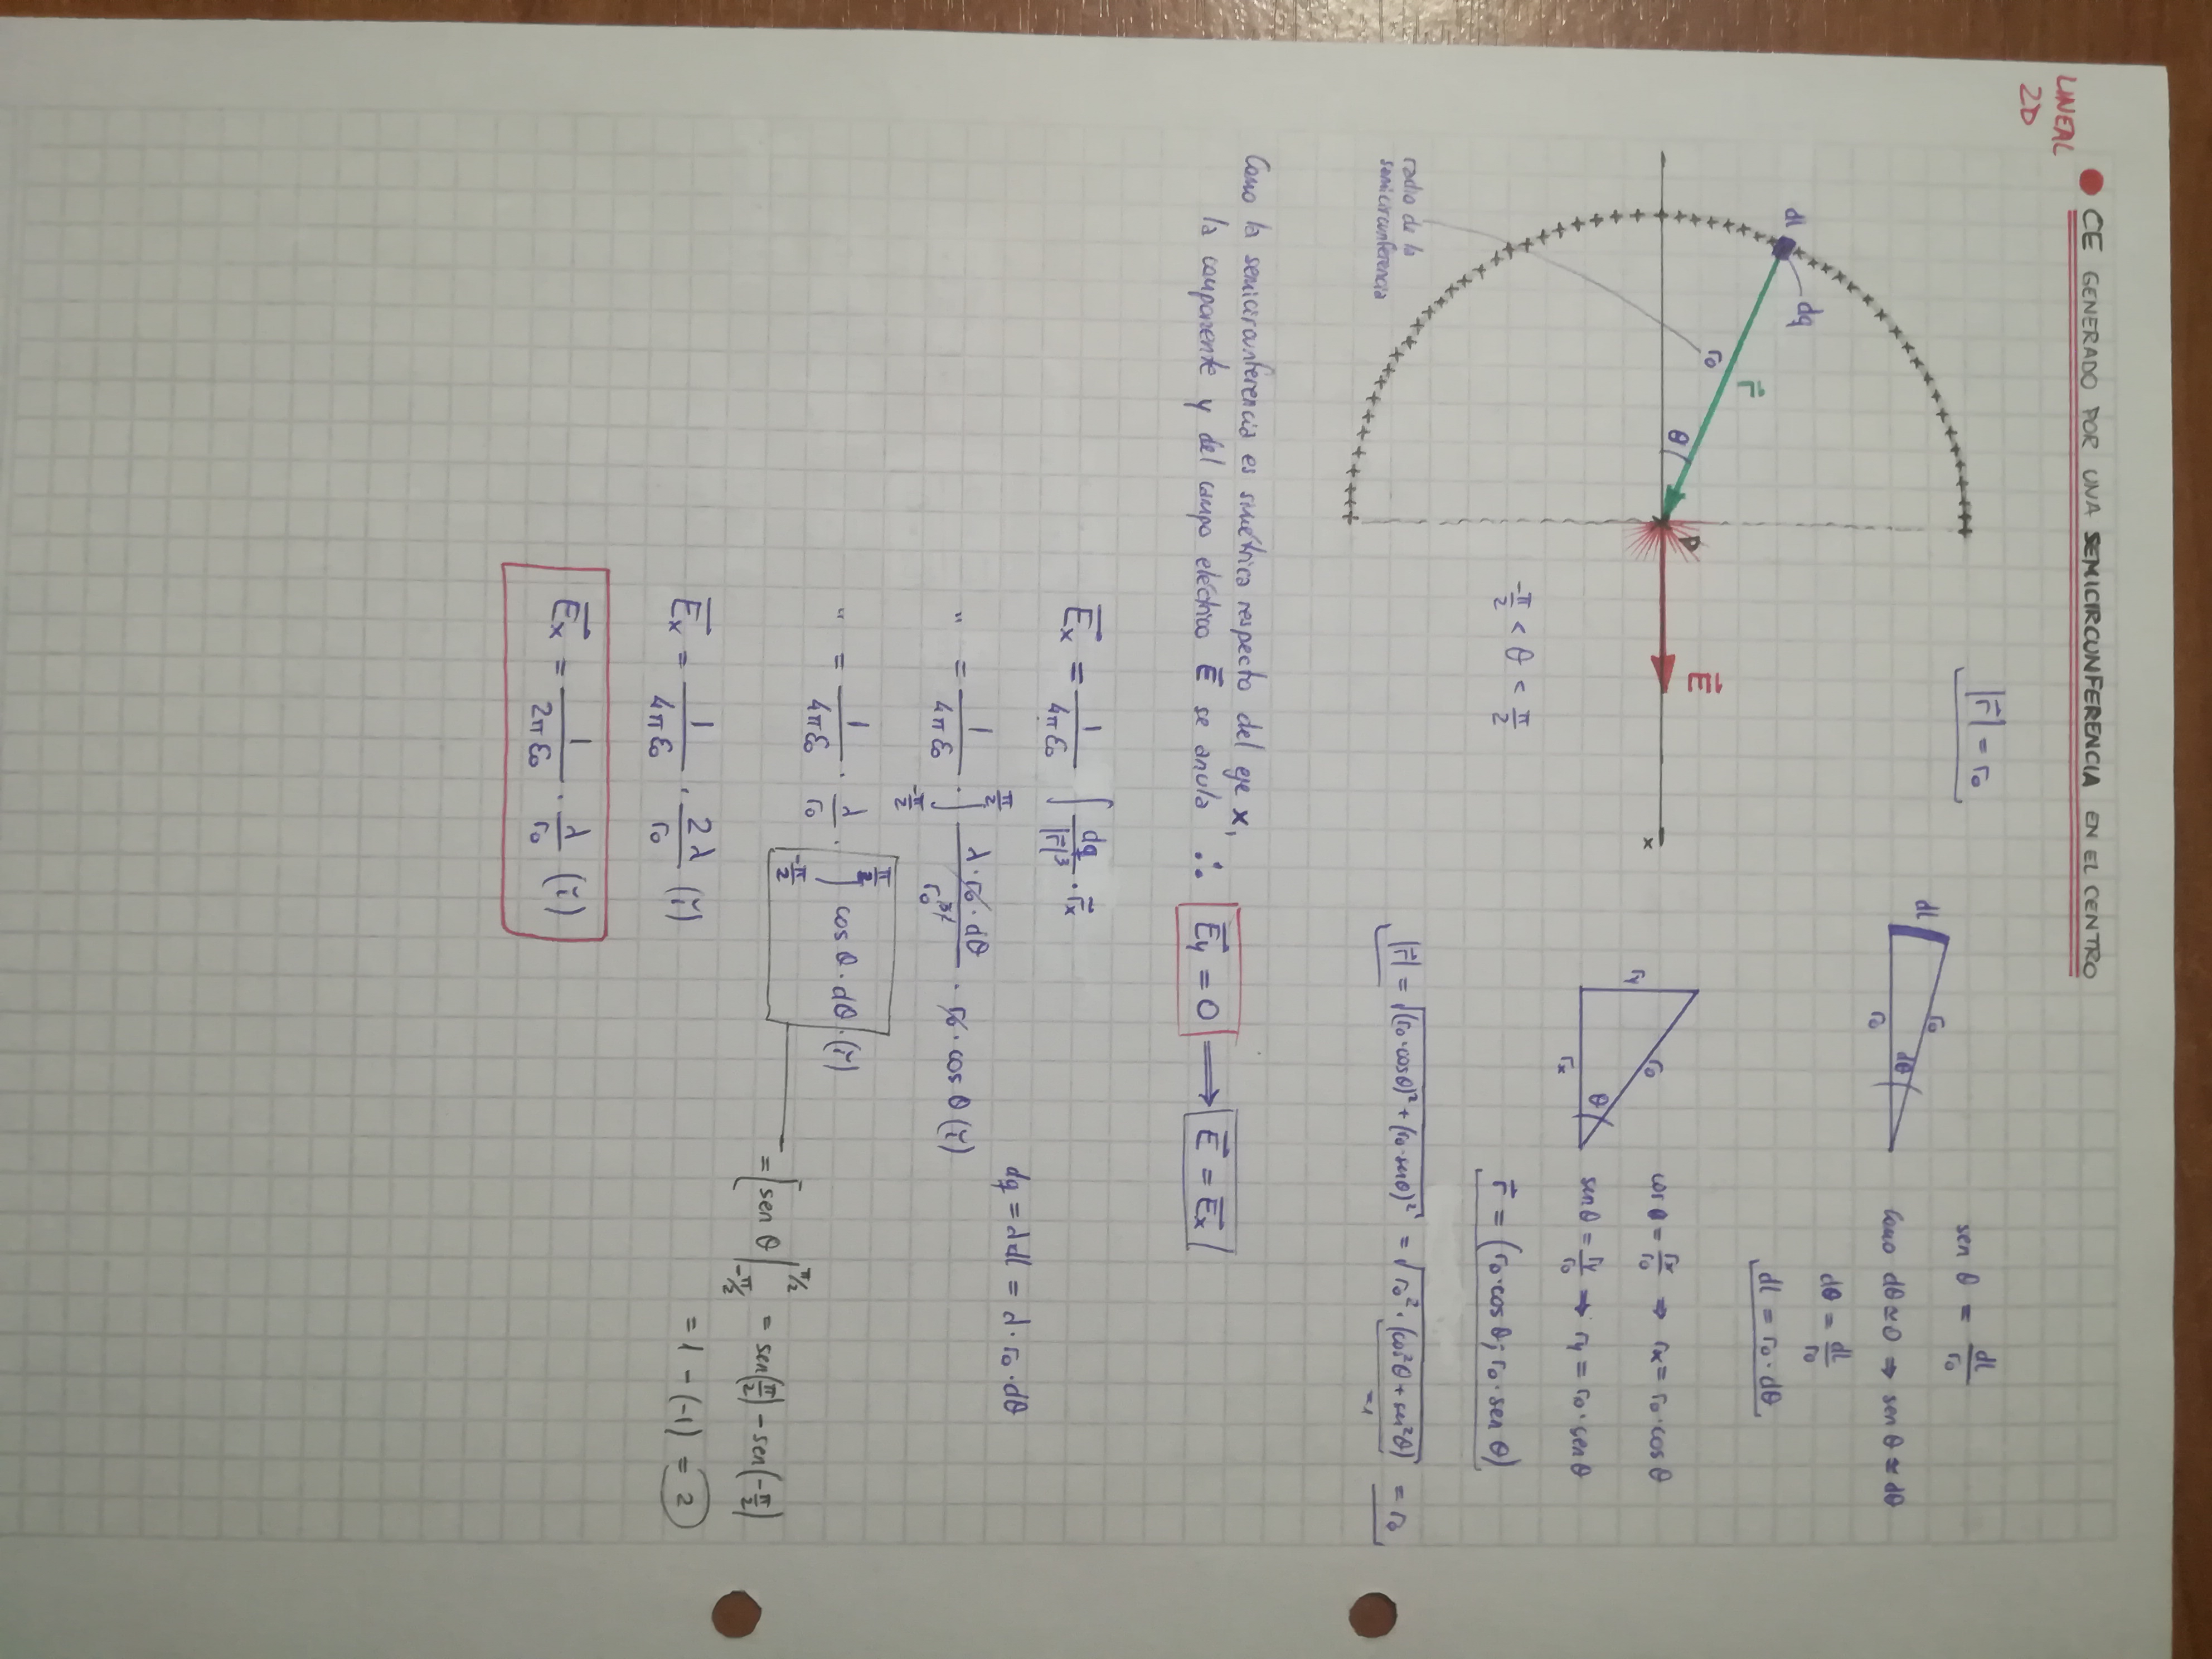 LINEAL
2D
● CE GENERADO POR UNA SEMICIRCUNFERENCIA EN EL CENTRO
|r⃗| = r₀
dl
dq
r⃗
r₀
θ
P
E⃗
x
-π/2 < θ < π/2
radio de la
semicircunferencia
dl
r₀
dθ
r₀
sen θ = dl/r₀
Como dθ ≃ 0 ⇒ sen θ ≃ dθ
dθ = dl/r₀
dl = r₀ · dθ
ry
r₀
θ
rx
cos θ = rx/r₀ ⇒ rx = r₀ · cos θ
sen θ = ry/r₀ ⇒ ry = r₀ · sen θ
r⃗ = (r₀ · cos θ; r₀ · sen θ)
|r⃗| = √((r₀ · cos θ)² + (r₀ · sen θ)²) = √(r₀² · (cos²θ + sen²θ)) = r₀
=1
Como la semicircunferencia es simétrica respecto del eje x,
la componente y del campo eléctrico E⃗ se anula ∴ E⃗y = 0 ⟹ E⃗ = E⃗x
E⃗x = 1/(4πε₀) ∫ dq/|r⃗|³ · r⃗x
dq = λdl = λ · r₀ · dθ
" = 1/(4πε₀) · ∫_{-π/2}^{π/2} λ · r₀ · dθ/r₀³ · r₀ · cos θ (i⃗)
" = 1/(4πε₀) · λ/r₀ · ∫_{-π/2}^{π/2} cos θ · dθ · (i⃗)
= [sen θ]_{-π/2}^{π/2} = sen(π/2) - sen(-π/2)
= 1 - (-1) = 2
E⃗x = 1/(4πε₀) · 2λ/r₀ (i⃗)
E⃗x = 1/(2πε₀) · λ/r₀ (i⃗)